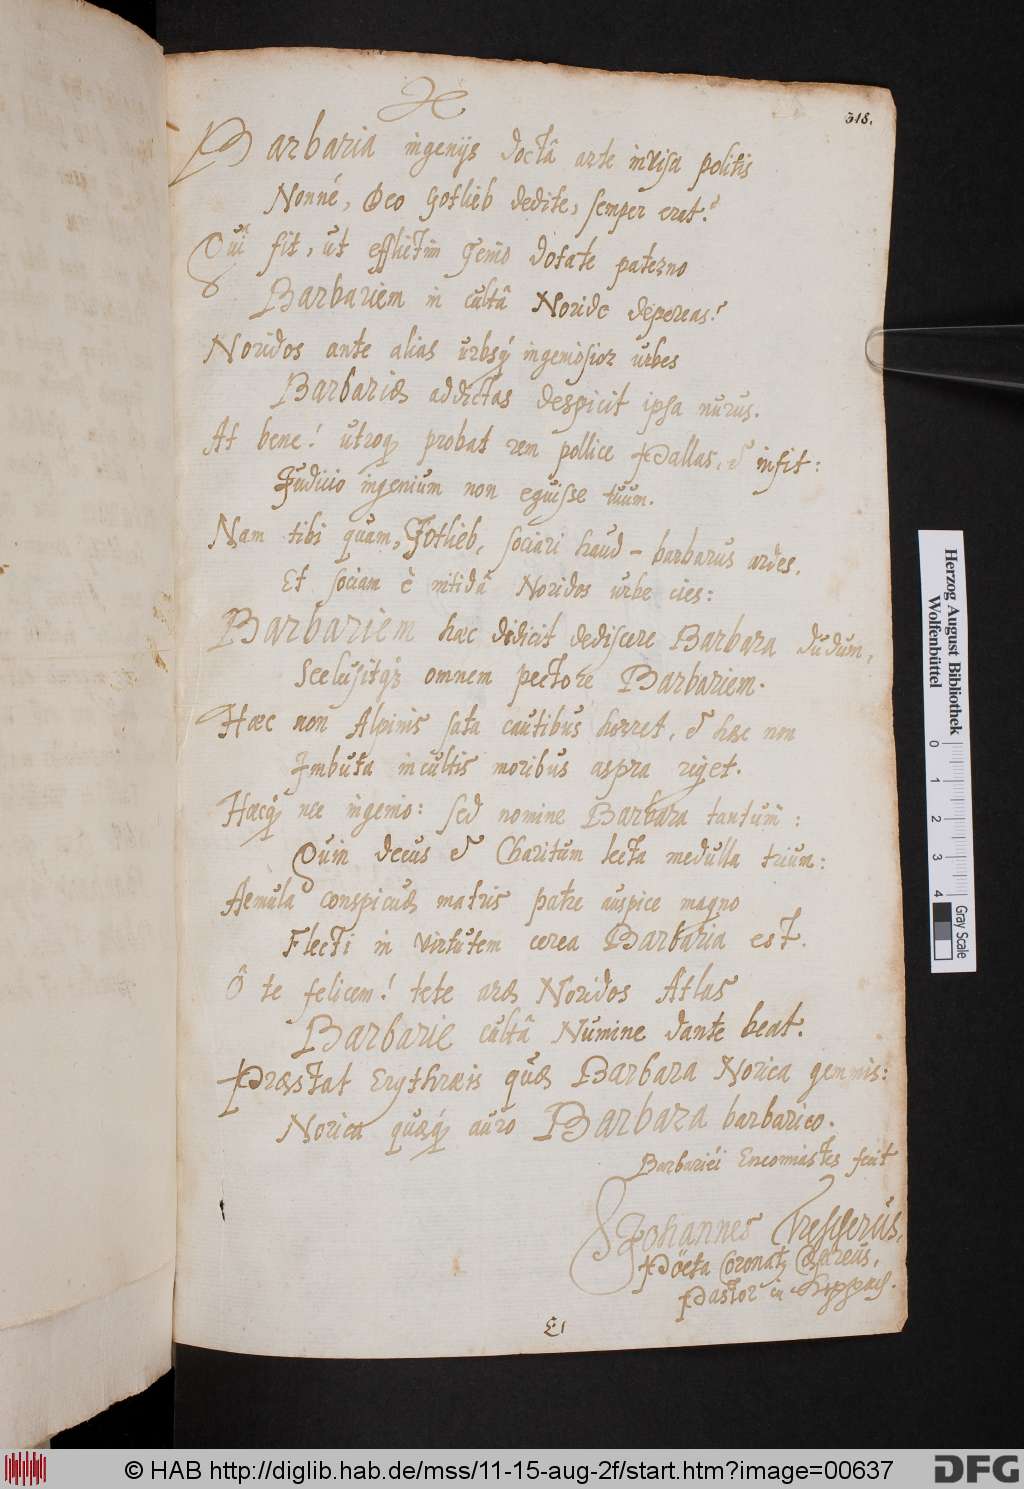 318.
Barbaria ingenijs doctâ arte invisa politis
Nonné, Deo Gotlieb dedite, semper erat?
Qui fit, ut efflictim genio dotate paterno
Barbariem in cultâ Noride depereas?
Noridos ante alias urbsq́ ingeniosior urbes
Barbariæ addictas despicit ipsa nurus.
At bene! utroq́ probat rem pollice Pallas, & infit:
Judicio ingenium non eguisse tuum.
Nam tibi quam, Gotlieb, sociari haud - barbarus ardes.
Et sociam è nitidâ Noridos urbe cies:
Barbariem haec didicit dediscere Barbara dudum,
Sceluşitq́ omnem pectore Barbariem.
Haec non Alpinis sata cautibus horret, & haec non
Imbuta incultis moribus aspra riget.
Haecq́ nec ingenio: sed nomine Barbara tantum:
Quin decus & Charitum lecta medulla trium:
Aemula conspicuæ matris patre auspice magno
Flecti in virtutem cerea Barbaria est.
Ô te felicem! tete aræ Noridos Atlas
Barbarie cultâ Numine dante beat.
Præstat Erythræis quæ Barbara Norica gemmis:
Norica quæq́ auro Barbara barbarico.
Barbariéi Encomiastes fecit
Johannes
Pöeta Coronatq Cæsareus,
Pastor in
Herzog August Bibliothek
Wolfenbüttel
0 1 2 3 4
Gray Scale
© HAB http://diglib.hab.de/mss/11-15-aug-2f/start.htm?image=00637
DFG